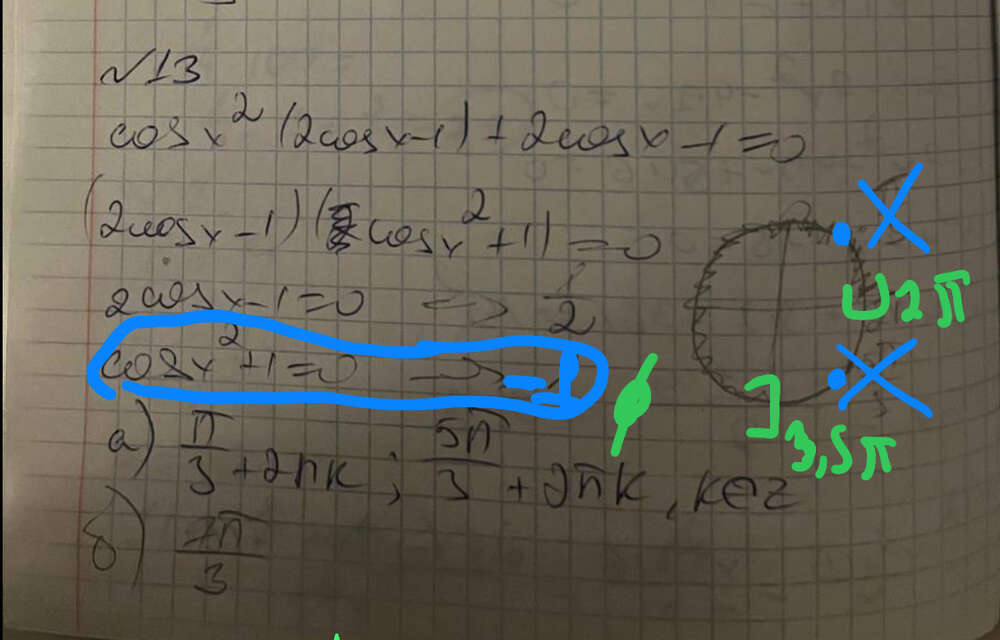 √13
cosx² (2cosx-1) + 2cosx - 1 = 0
(2cosx - 1) (cosx² + 1) = 0
2cosx - 1 = 0 <-> 1/2
cosx² + 1 = 0 -> -1 ∅
а) π/3 + 2πk ; 5π/3 + 2πk , k∈z
б) 7π/3
2π
3,5π